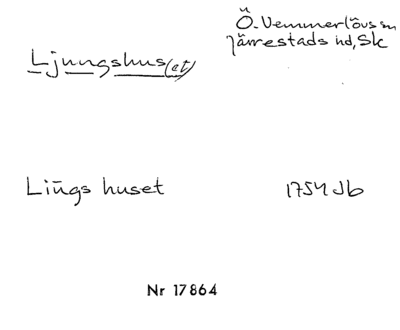 Ö. Vemmerlövs sn
Järrestads hd, Sk
Ljungshus(et)
Liūgs huset 1754 Jb
Nr 17864